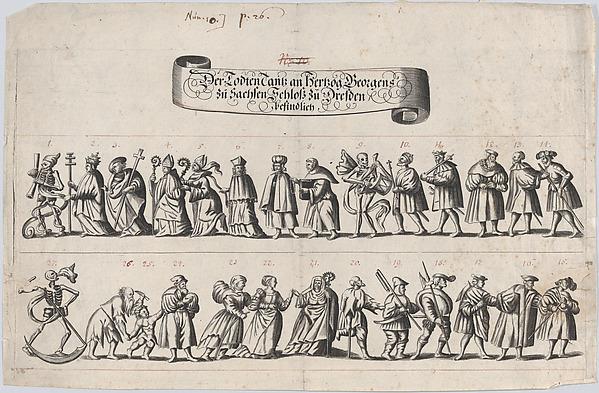 Num. 10.] p. 26.
Der Todten Tantz an Hertzog Georgens
zu Sachsen Schloß zu Dresden
befindlich.
1. 2. 3. 4. 5. 6. 7. 8. 9. 10. 11. 12. 13. 14.
27. 26. 25. 24. 23 22. 21. 20. 19. 18. 17. 16. 15.